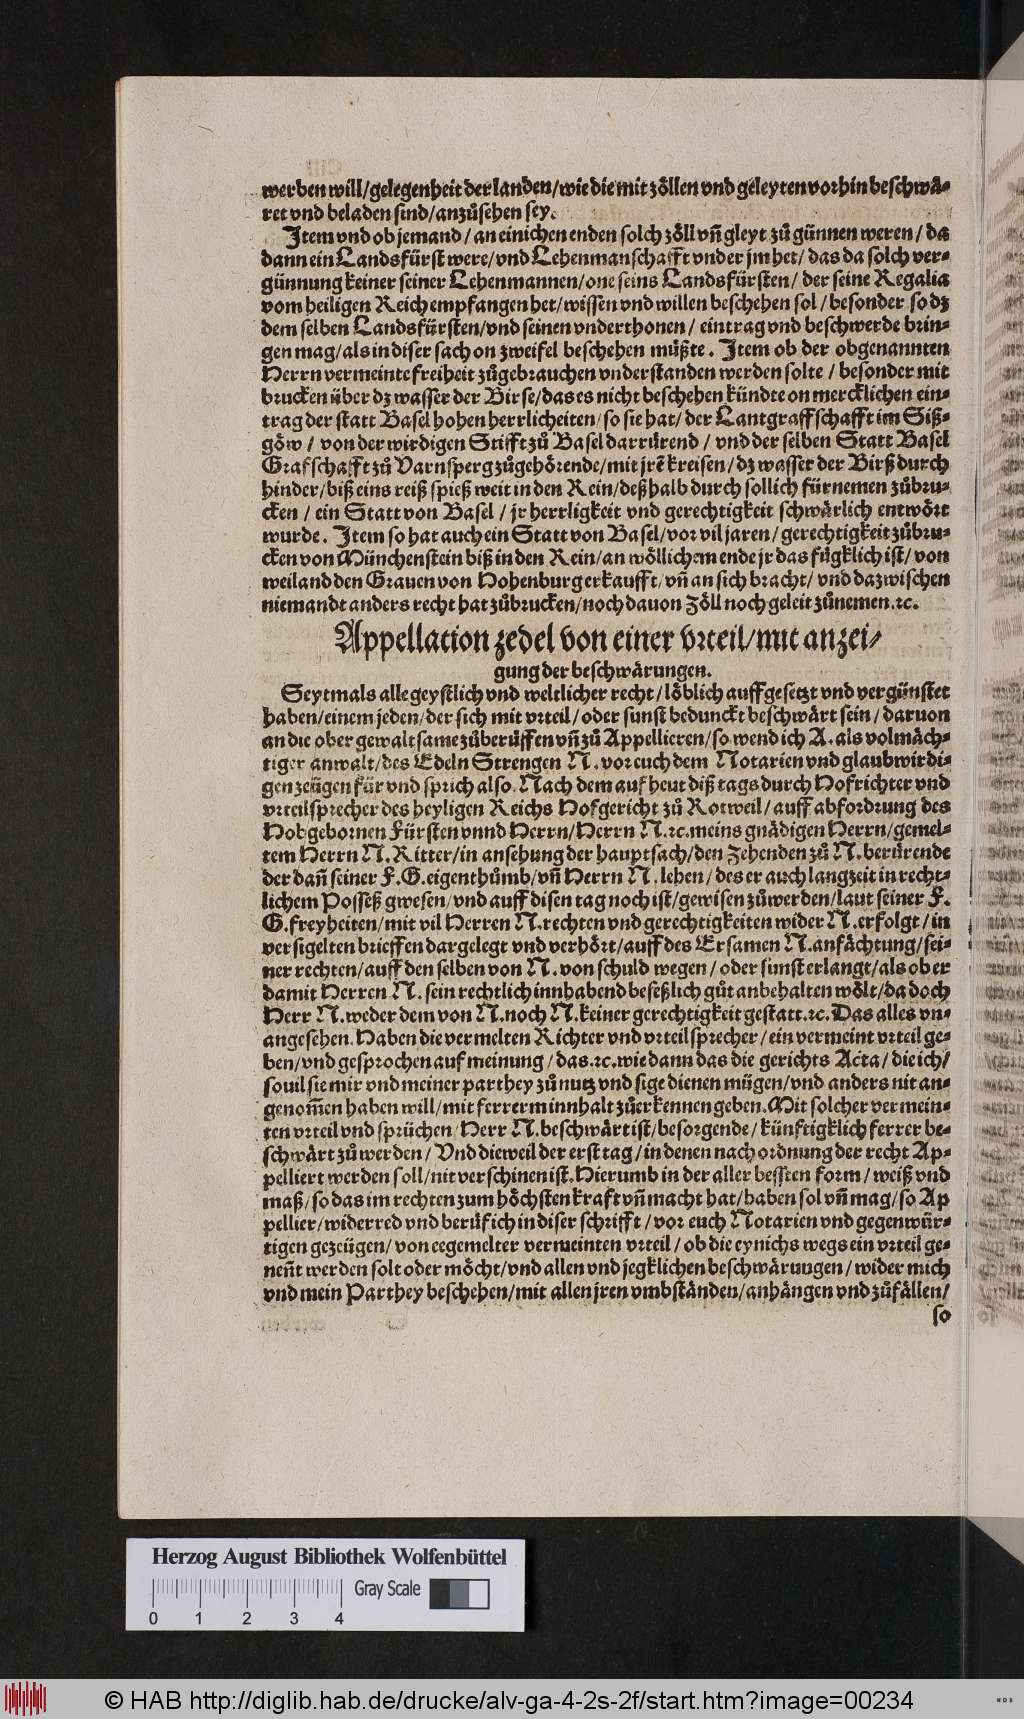 werben will/gelegenheit der landen/wie die mit zöllen vnd geleyten vorhin beschwä-
ret vnd beladen sind/anzůsehen sey.
Item vnd ob jemand/an einichen enden solch zöll vñ gleyt zů günnen weren/da
dann ein Landsfürst were/vnd Lehenmanschafft vnder jm het/das da solch ver-
günnung keiner seiner Lehenmannen/one seins Landsfürsten/der seine Regalia
vom heiligen Reich empfangen het/wissen vnd willen beschehen sol/besonder so dz
dem selben Landsfürsten/vnd seinen vnderthonen/eintrag vnd beschwerde brin-
gen mag/als in diser sach on zweifel beschehen müßte. Item ob der obgenannten
Herrn vermeinte freiheit zůgebrauchen vnderstanden werden solte/besonder mit
brucken über dz wasser der Birse/das es nicht beschehen kündte on mercklichen ein-
trag der statt Basel hohen herrlicheiten/so sie hat/der Lantgraffschafft im Siß-
göw/von der wirdigen Stifft zů Basel darrürend/vnd der selben Statt Basel
Grafschafft zů Varnsperg zůgehörende/mit jrē kreisen/dz wasser der Birß durch
hinder/biß eins reiß spieß weit in den Rein/deßhalb durch sollich fürnemen zůbru-
cken/ein Statt von Basel/jr herrligkeit vnd gerechtigkeit schwärlich entwört
wurde. Item so hat auch ein Statt von Basel/vor vil jaren/gerechtigkeit zůbru-
cken von Münchenstein biß in den Rein/an wöllichem ende jr das fügklich ist/von
weiland den Grauen von Hohenburg erkaufft/vñ an sich bracht/vnd dazwischen
niemandt anders recht hat zůbrucken/noch dauon Zöll noch geleit zůnemen.ꝛc.
Appellation zedel von einer vrteil/mit anzei-
gung der beschwärungen.
Seytmals alle geystlich vnd weltlicher recht/löblich auffgesetzt vnd vergünstet
haben/einem jeden/der sich mit vrteil/oder sunst bedunckt beschwärt sein/daruon
an die ober gewaltsame zůberůffen vñ zů Appellieren/so wend ich A. als volmäch-
tiger anwalt/des Edeln Strengen N. vor euch dem Notarien vnd glaubwirdi-
gen zeügen für vnd sprich also. Nach dem auf heut diß tags durch Hofrichter vnd
vrteilsprecher des heyligen Reichs Hofgericht zů Rotweil/auff abfordrung des
Hobgebornen Fürsten vnnd Herrn/Herrn N.ꝛc.meins gnädigen Herrn/gemel-
tem Herrn N. Ritter/in ansehung der hauptsach/den Zehenden zů N. berürende
der dañ seiner F.G.eigenthůmb/vñ Herrn N. lehen/des er auch langzeit in recht-
lichem Posseß gwesen/vnd auff disen tag noch ist/gewisen zůwerden/laut seiner F.
G.freyheiten/mit vil Herren N.rechten vnd gerechtigkeiten wider N.erfolgt/in
versigelten brieffen dargelegt vnd verhört/auff des Ersamen N.anfächtung/sei-
ner rechten/auff den selben von N. von schuld wegen/oder sunst erlangt/als ob er
damit Herren N. sein rechtlich innhabend beseßlich gůt anbehalten wölt/da doch
Herr N.weder dem von N.noch N.keiner gerechtigkeit gestatt.ꝛc.Das alles vn-
angesehen.Haben die vermelten Richter vnd vrteilsprecher/ein vermeint vrteil ge-
ben/vnd gesprochen auf meinung/das.ꝛc.wie dann das die gerichts Acta/die ich/
souil sie mir vnd meiner parthey zů nutz vnd sige dienen mügen/vnd anders nit an-
genom̃en haben will/mit ferrerm innhalt zůerkennen geben.Mit solcher vermein-
ten vrteil vnd sprüchen/Herr N.beschwärt ist/besorgende/künftigklich ferrer be-
schwärt zů werden/Vnd dieweil der erst tag/in denen nach ordnung der recht Ap-
pelliert werden soll/nit verschinen ist.Hierumb in der aller bessten form/weiß vnd
maß/so das im rechten zum höchsten kraft vñ macht hat/haben sol vñ mag/so Ap
pellier/widerred vnd berůf ich in diser schrifft/vor euch Notarien vnd gegenwür-
tigen gezeügen/von eegemelter vermeinten vrteil/ob die eynichs wegs ein vrteil ge-
neñt werden solt oder möcht/vnd allen vnd jegklichen beschwäruugen/wider mich
vnd mein Parthey beschehen/mit allen jren vmbständen/anhängen vnd zůfällen/
so
Herzog August Bibliothek Wolfenbüttel
Gray Scale
0 1 2 3 4
© HAB http://diglib.hab.de/drucke/alv-ga-4-2s-2f/start.htm?image=00234